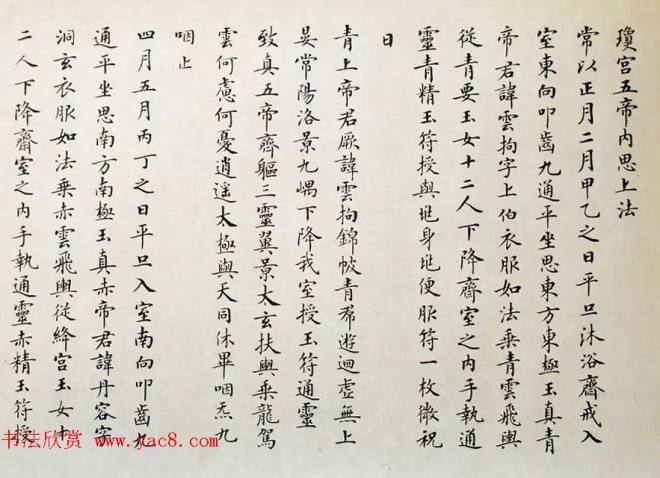 瓊宮五帝内思上法
常以正月二月甲乙之日平旦沐浴齋戒入
室東向叩齒九通平坐思東方東極玉真青
帝君諱雲拘字上伯衣服如法乘青雲飛輿
從青要玉女十二人下降齋室之内手執通
靈青精玉符授與兆身兆便服符一枚微祝
日
青上帝君厥諱雲拘錦帔青帬遊迴虛無上
晏常陽洛景九嵎下降我室授玉符通靈
致真五帝齊軀三靈翼景太玄扶輿乘龍駕
雲何慮何憂逍遥太極與天同休畢咽炁九
咽止
四月五月丙丁之日平旦入室南向叩齒九
通平坐思南方南極玉真赤帝君諱丹容字
洞玄衣服如法乘赤雲飛輿從絳宮玉女十
二人下降齋室之内手執通靈赤精玉符授
书法欣赏 www.yac8.com